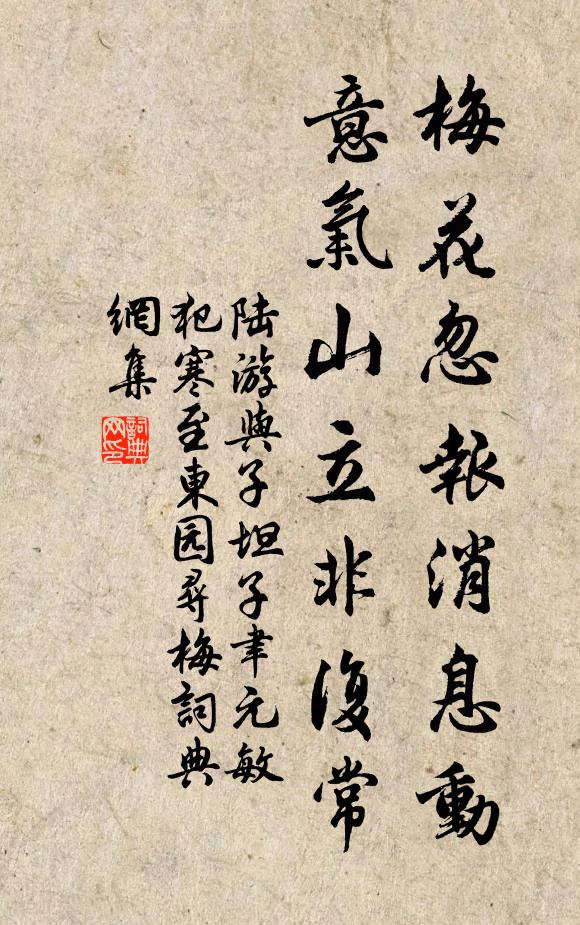 梅花忽報消息動
意氣山立非復常
陸游與子坦子聿元敏
犯寒至東园尋梅詞典
網集
詞典網印